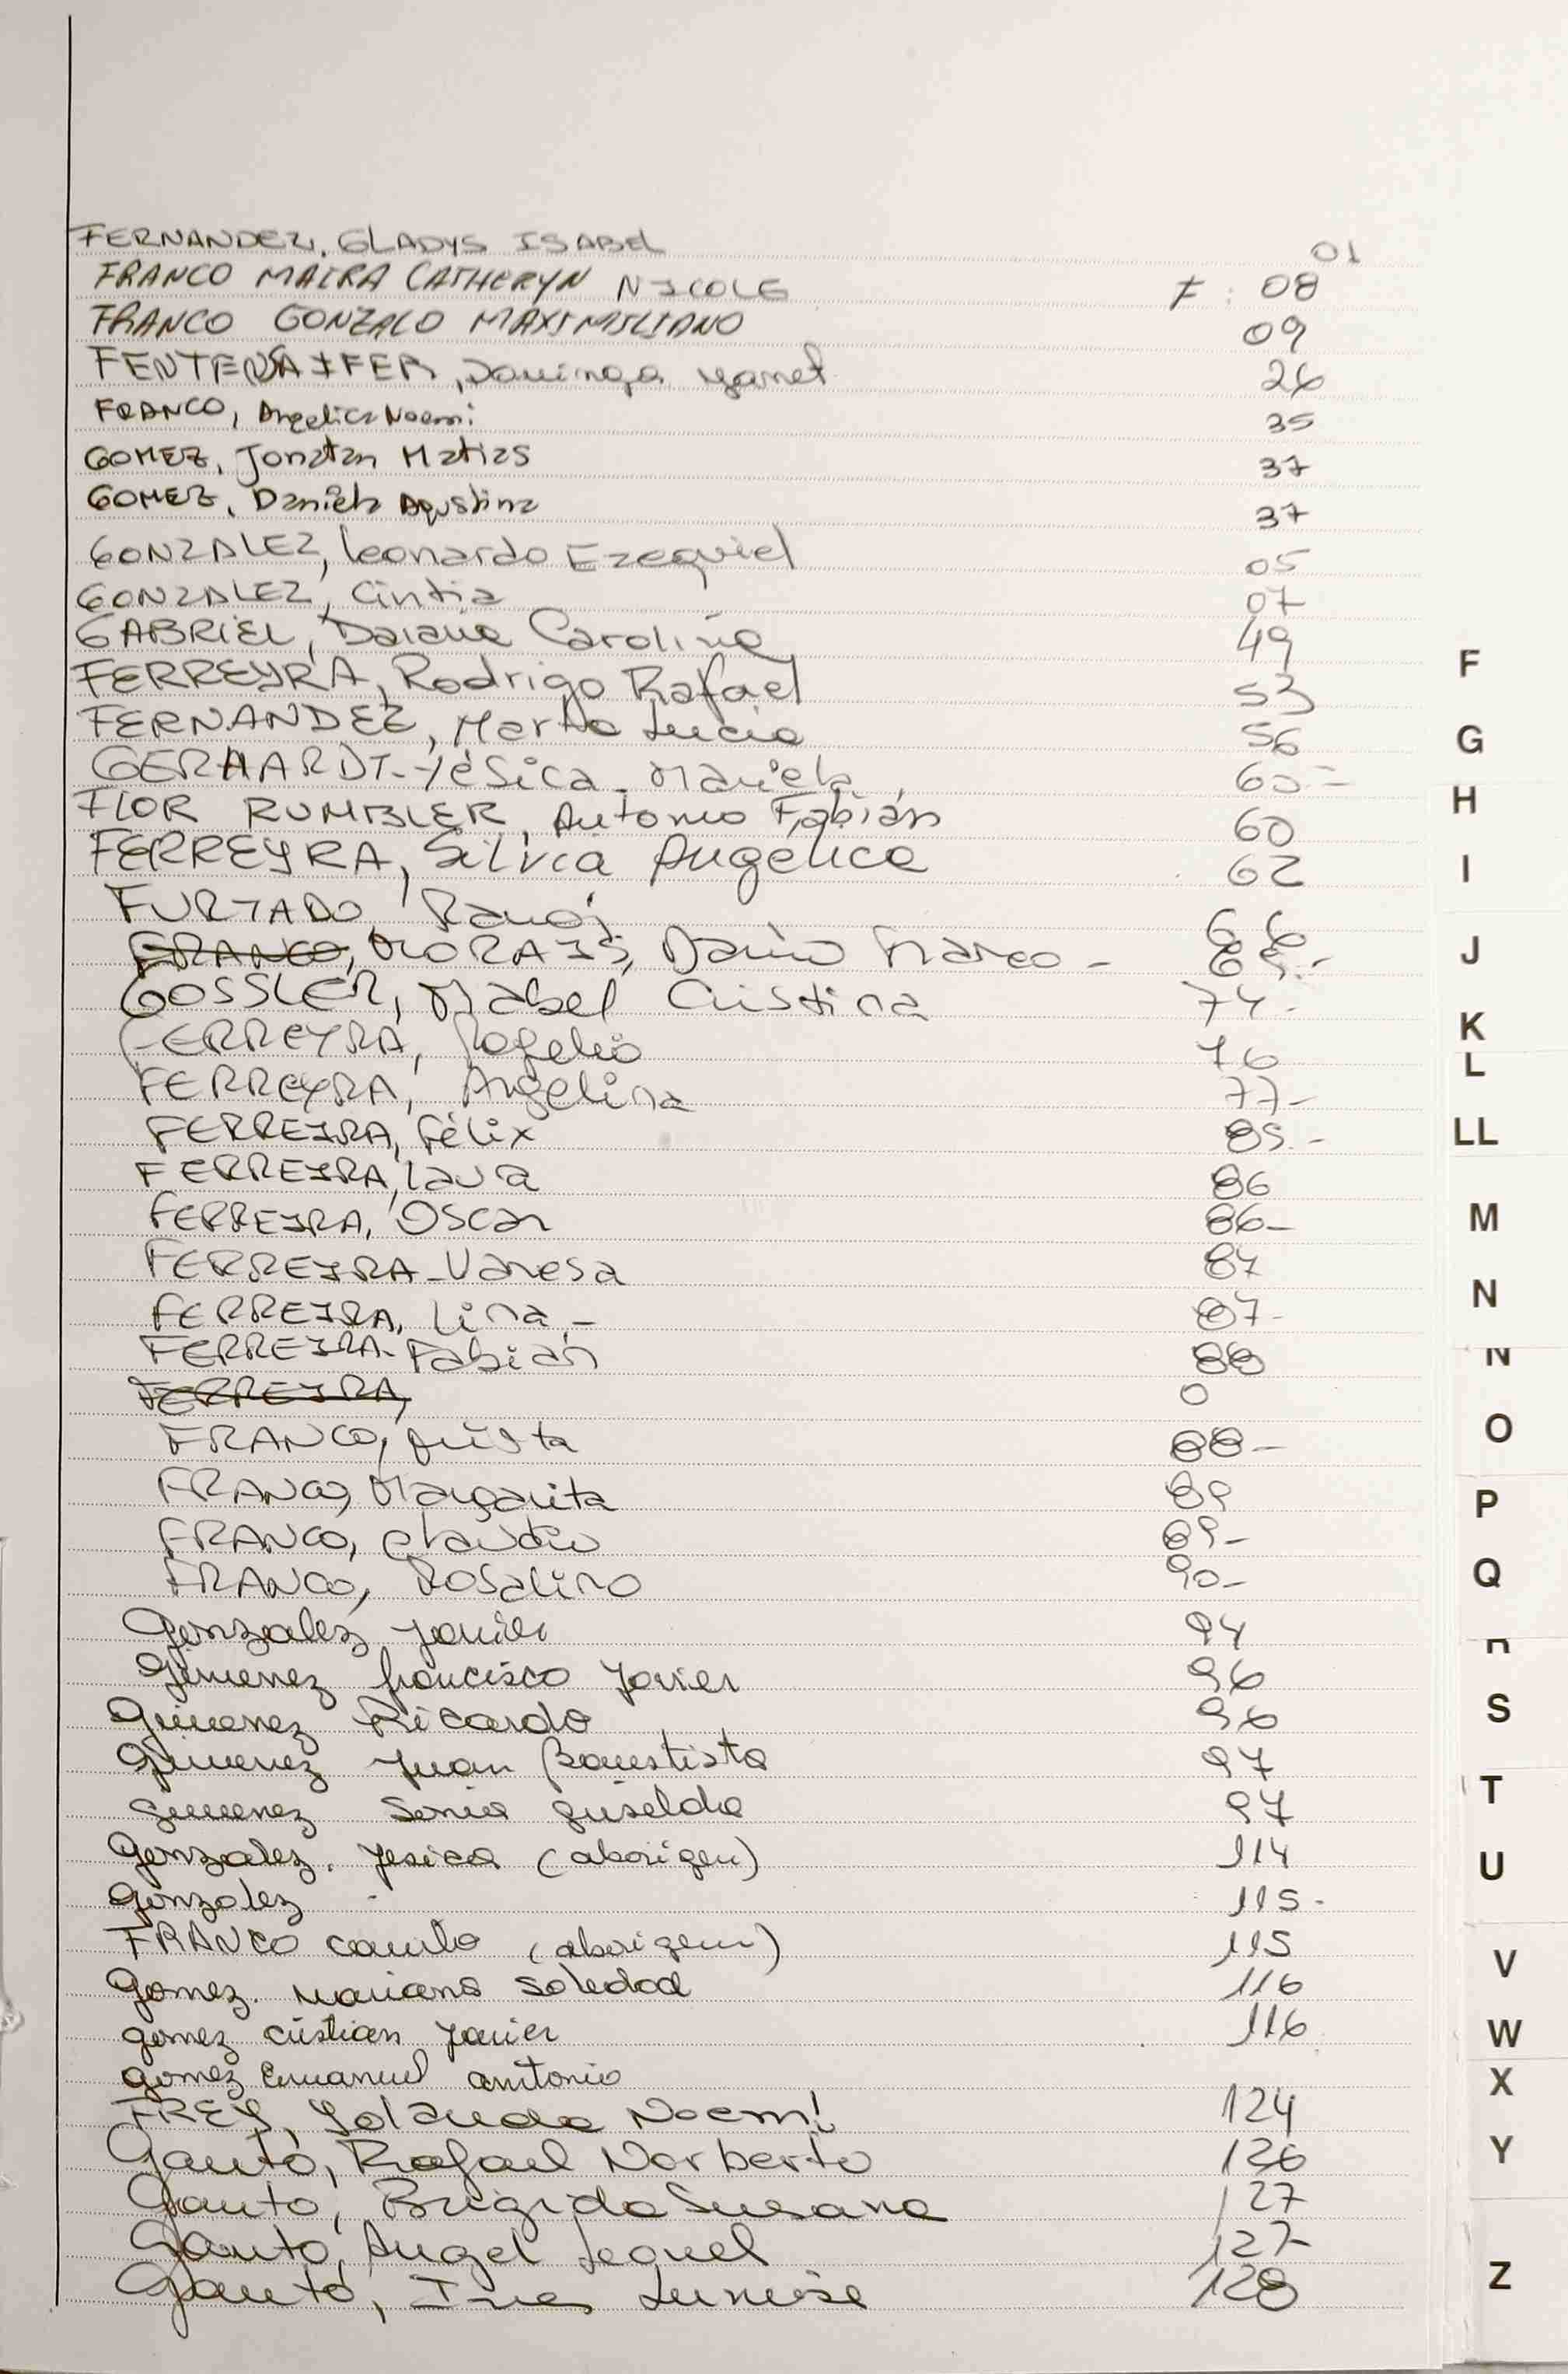 FERNANDEZ, GLADYS ISABEL 01
FRANCO MAIRA CATHERYN NICOLE F: 08
FRANCO GONZALO MAXIMILIANO 09
Dominga Yanet 26
FRANCO, Angelica Noemi 35
GOMEZ, Jonatan Matias 37
GOMEZ, Daniela Agustina 37
GONZALEZ, Leonardo Ezequiel 05
GONZALEZ, Cintia 07
GABRIEL, Daiana Carolina 49
FERREYRA, Rodrigo Rafael 53
FERNANDEZ, Marta Lucia 56
GERHARDT-Yésica Mariela 60-
FLOR RUMBLER, Antonio Fabián 60
FERREYRA, Silvia Angélica 62
FURTADO, Ramón 66
FRANCO, MORAIS, Darío Marco -
GOSSLER, Mabel Cristina 74-
FERREYRA, Rogelio 76
FERREYRA, Angelina 77-
FERREIRA, Félix 85.-
FERREIRA, Laura 86
FERREIRA, Oscar 86-
FERREIRA-Vanesa 87
FERREIRA, Lina.- 87-
FERREIRA-Fabián 88
FERREIRA, 0
FRANCO, 88-
FRANCO, Margarita 89
FRANCO, Claudio 89-
FRANCO, Rosalino 90-
Gonzalez Javier 94
Gimenez francisco Javier 96
Gimenez Ricardo 96
Gimenez Juan Baustista 97
Gimenez Sonia Griselda 97
Gonzalez. Yesica (aborigen) 114
Gonzalez - 115-
FRANCO Camila (aborigen) 115
Gomez. Mariana Soledad 116
gomez cristian Javier 116
gomez Emanuel antonio
FREY, Yolanda Noemí 124
Gauto, Rafael Norberto 126
Gauto, Brigida Susana 127
Gauto, Angel 127-
Gauto, 128
F
G
H
I
J
K
L
LL
M
N
O
P
Q
S
T
U
V
W
X
Y
Z